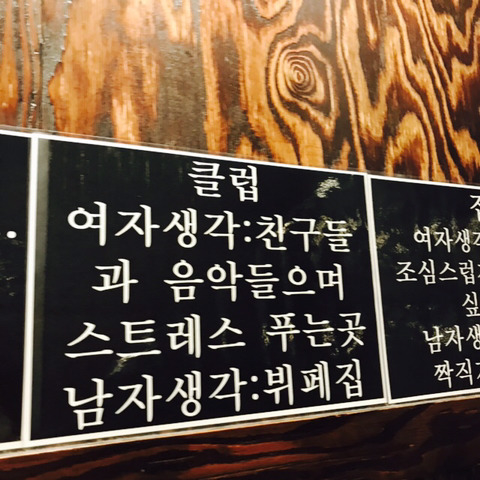 클럽
여자생각:친구들
과 음악들으며
스트레스 푸는곳
남자생각:뷔페집
여자생각
조심스럽
싶
남자생
짝직